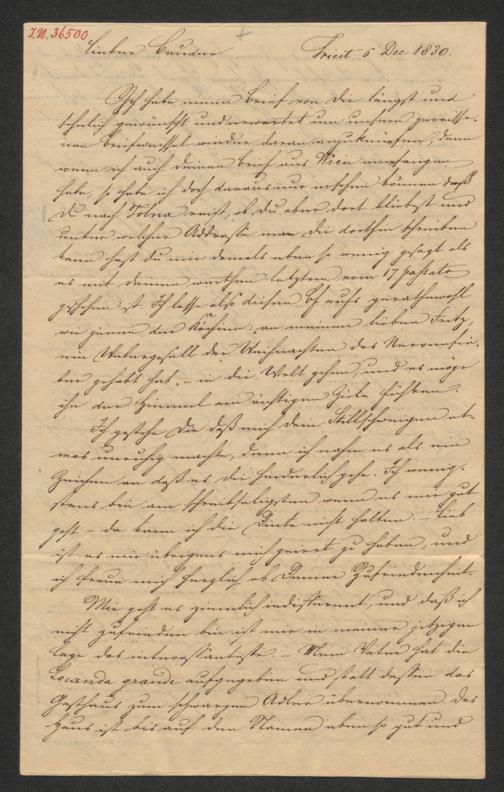 I.N. 36500
Lieber Bruder
Triest 6 Dec 1830.
Ich habe einen Brief von Dir längst und
sehnlich gewünscht und erwartet um unsern zerrisse-
nen Briefwechsel wieder daran anzuknüpfen, denn
wenn ich auch deinen Brief aus Wien empfangen
habe, so habe ich doch daraus nur ersehen können daß
Du nach Tolna reist, ob du aber dort bleibest und
unter welcher Addresse man Dir dorthin schreiben
kann hast du mir damals eben so wenig gesagt als
es mit deinem werthen letztem vom 17 passato
geschehen ist. Ich lasse also diesen Bf aufs gerathewohl
wie jener der Köchin: an meinen lieben Fritz,
der Weihnachten das Nervenfie-
ber gehabt hat, – in die Welt gehen, und es möge
ihn der Himmel am richtigen Ziele führen.
Ich gestehe Dir daß mich dein Stillschweigen et-
was unruhig machte, denn ich nahm es als ein
Zeichen an daß es dir hinderlich gehe. Ich wenig-
stens bin am schreibseligsten wenn es mir gut
geht – da kann ich die Dinte nicht halten. – Lieb
ist es mir übrigens mich geirrt zu haben, und
ich freue mich herzlich ob Deiner Zufriedenheit.
Mir geht es ziemlich indifferent, und daß ich
nicht zufrieden bin ist mir in meiner jetzigen
Lage das interessanteste. – Mein Vater hat die
Locanda grande aufgegeben und statt dessen das
Gasthaus zum schwarzen Adler übernommen. Das
Haus ist bis auf den Namen eben so gut und